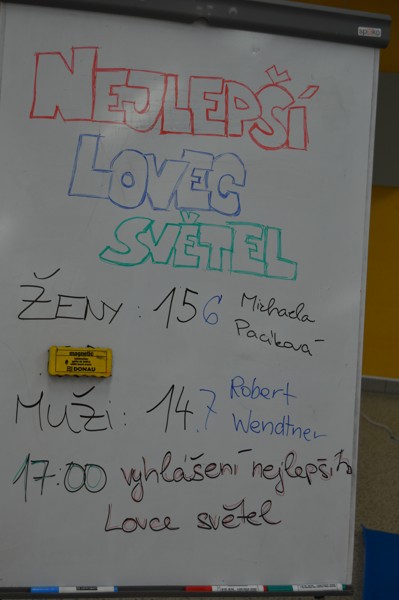 NEJLEPŠÍ
LOVEC
SVĚTEL
ŽENY: 156 Michaela
Paciková
magnetic
DONAU
MUŽI: 14.7 Robert
Wendtner
17:00 vyhlášení nejlepšího
Lovce světel